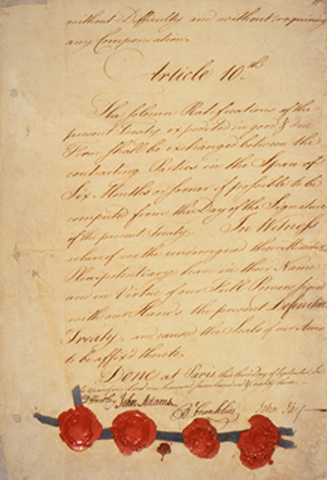 without Difficulty and without requiring
any Compensation.
Article 10th
The solemn Ratifications of the
present Treaty expedited in good & due
Form shall be exchanged between the
contracting Parties in the Space of
Six Months or sooner if possible to be
computed from the Day of the Signature
of the present Treaty. In Witness
whereof we the undersigned their Ministers
Plenipotentiary have in their Name
and in Virtue of our Full Powers signed
with our Hands the present Definitive
Treaty, and caused the Seals of our Arms
to be affixed thereto.
Done at Paris, this third Day of September, In
the Year of our Lord one thousand seven hundred & eighty three.
D Hartley John Adams B Franklin John Jay